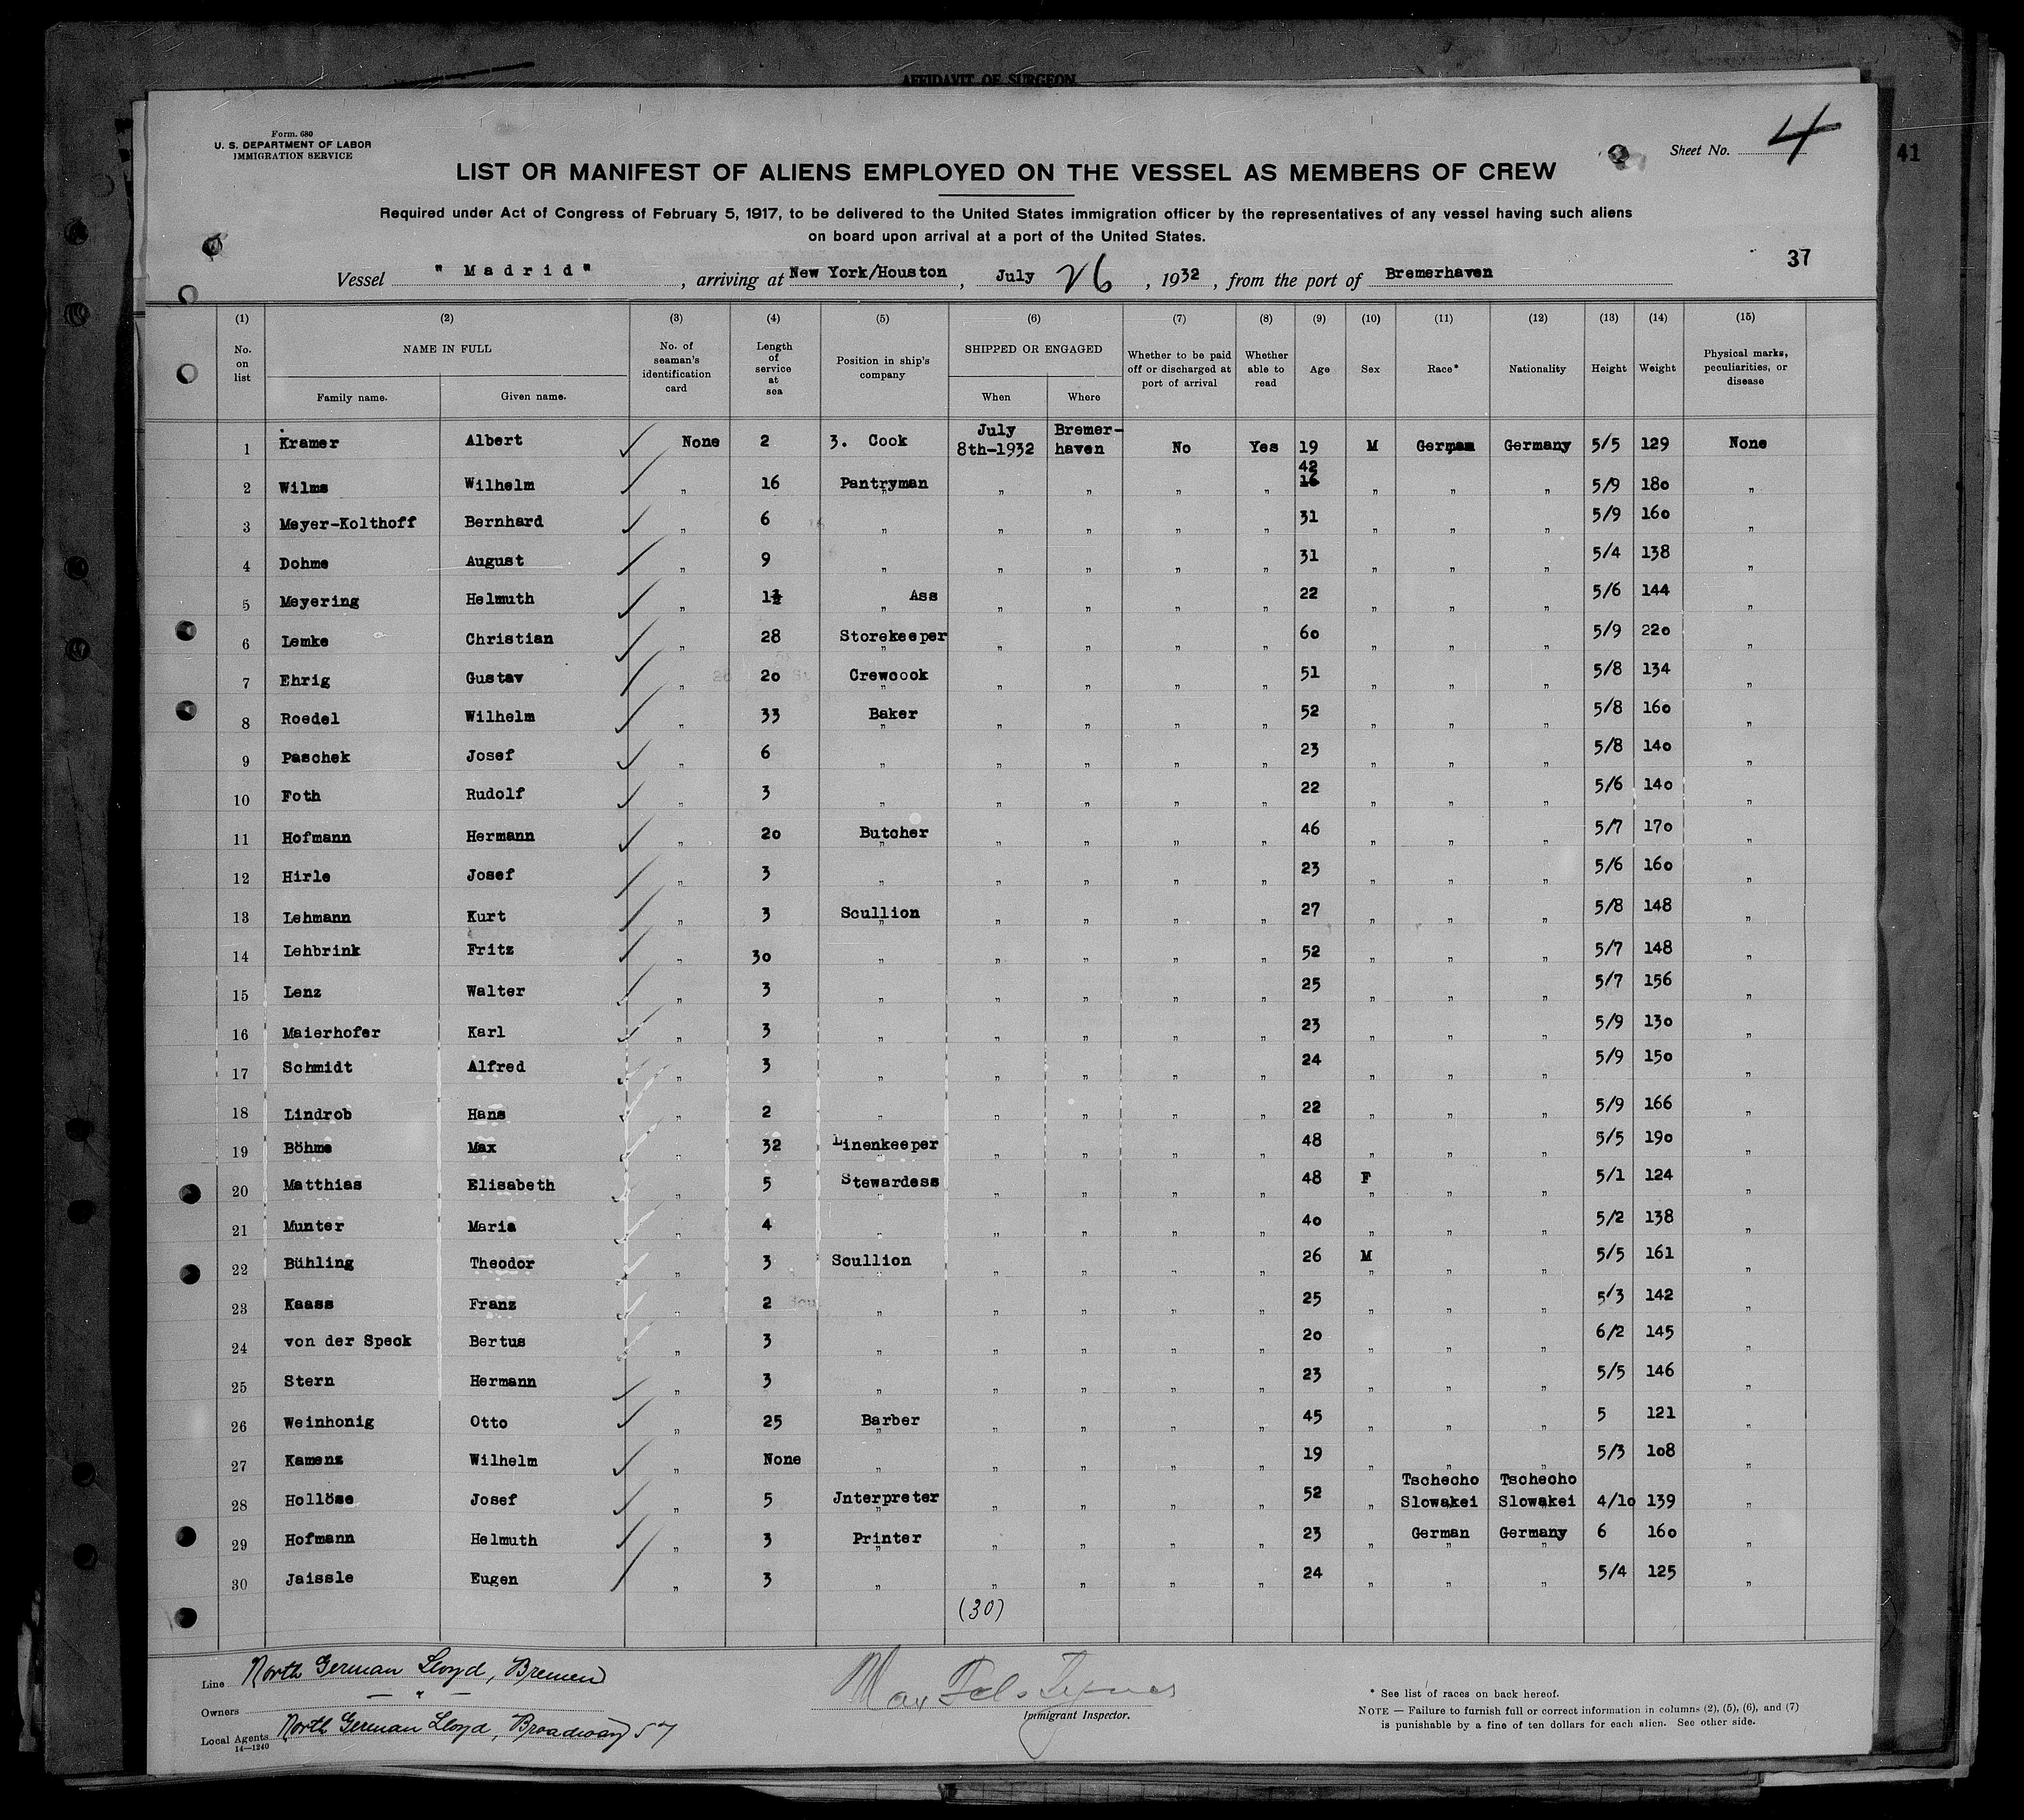 AFFIDAVIT OF SURGEON
Form. 680
U. S. DEPARTMENT OF LABOR
IMMIGRATION SERVICE
Sheet No. 4
41
LIST OR MANIFEST OF ALIENS EMPLOYED ON THE VESSEL AS MEMBERS OF CREW
Required under Act of Congress of February 5, 1917, to be delivered to the United States immigration officer by the representatives of any vessel having such aliens
on board upon arrival at a port of the United States.
37
Vessel "Madrid", arriving at New York/Houston, July 26, 1932, from the port of Bremerhaven
(1) (2) (3) (4) (5) (6) (7) (8) (9) (10) (11) (12) (13) (14) (15)
No. on list NAME IN FULL Family name. Given name. No. of seaman's identification card Length of service at sea Position in ship's company SHIPPED OR ENGAGED When Where Whether to be paid off or discharged at port of arrival Whether able to read Age Sex Race* Nationality Height Weight Physical marks, peculiarities, or disease
1 Kramer Albert None 2 3. Cook July 8th-1932 Bremerhaven No Yes 19 M German Germany 5/5 129 None
2 Wilms Wilhelm " 16 Pantryman " " " " 42 16 " " " 5/9 180 "
3 Meyer-Kolthoff Bernhard " 6 " " " " " 31 " " " 5/9 160 "
4 Dohme August " 9 " " " " " 31 " " " 5/4 138 "
5 Meyering Helmuth " 1½ " Ass " " " " 22 " " " 5/6 144 "
6 Lemke Christian " 28 Storekeeper " " " " 60 " " " 5/9 220 "
7 Ehrig Gustav " 20 Crewcook " " " " 51 " " " 5/8 134 "
8 Roedel Wilhelm " 33 Baker " " " " 52 " " " 5/8 160 "
9 Paschek Josef " 6 " " " " " 23 " " " 5/8 140 "
10 Foth Rudolf " 3 " " " " " 22 " " " 5/6 140 "
11 Hofmann Hermann " 20 Butcher " " " " 46 " " " 5/7 170 "
12 Hirle Josef " 3 " " " " " 23 " " " 5/6 160 "
13 Lehmann Kurt " 3 Scullion " " " " 27 " " " 5/8 148 "
14 Lehbrink Fritz " 30 " " " " " 52 " " " 5/7 148 "
15 Lenz Walter " 3 " " " " " 25 " " " 5/7 156 "
16 Maierhofer Karl " 3 " " " " " 23 " " " 5/9 130 "
17 Schmidt Alfred " 3 " " " " " 24 " " " 5/9 150 "
18 Lindrob Hans " 2 " " " " " 22 " " " 5/9 166 "
19 Böhme Max " 32 Linenkeeper " " " " 48 " " " 5/5 190 "
20 Matthias Elisabeth " 5 Stewardess " " " " 48 F " " 5/1 124 "
21 Munter Maria " 4 " " " " " 40 " " " 5/2 138 "
22 Bühling Theodor " 3 Scullion " " " " 26 M " " 5/5 161 "
23 Kaass Franz " 2 " " " " " 25 " " " 5/3 142 "
24 von der Speck Bertus " 3 " " " " " 20 " " " 6/2 145 "
25 Stern Hermann " 3 " " " " " 23 " " " 5/5 146 "
26 Weinhonig Otto " 25 Barber " " " " 45 " " " 5 121 "
27 Kamenz Wilhelm " None " " " " " 19 " " " 5/3 108 "
28 Hollöse Josef " 5 Jnterpreter " " " " 52 " Tschecho Slowakei Tschecho Slowakei 4/10 139 "
29 Hofmann Helmuth " 3 Printer " " " " 23 " German Germany 6 160 "
30 Jaissle Eugen " 3 " " " " " 24 " " " 5/4 125 "
(30)
Line North German Lloyd, Bremen
Owners — " —
Local Agents North German Lloyd, Broadway 57
14—1240
Immigrant Inspector.
* See list of races on back hereof.
NOTE — Failure to furnish full or correct information in columns (2), (5), (6), and (7)
is punishable by a fine of ten dollars for each alien. See other side.